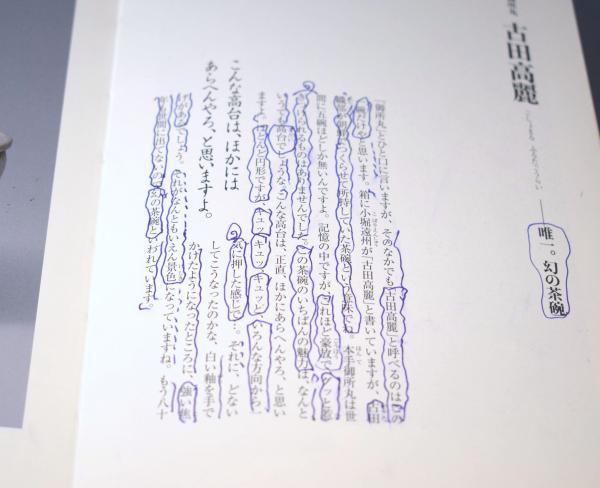 御所丸
古田高麗
ごしょまる ふるたこうらい
──唯一。幻の茶碗
「御所丸」とひと口に言いますが、そのなかでも「古田高麗」と呼べるのはこの
碗だけやと思います。箱に小堀遠州が「古田高麗」と書いていますが、古田
織部が朝鮮でつくらせて所持していた茶碗という意味でね。本手御所丸は世
間に五碗ほどしか無いんですよ。記憶の中ですが、これほど豪放でグッと惹
きつけられるものはありませんでした。この茶碗のいちばんの魅力は、なんと
いうても高台でしょうな。こんな高台は、正直、ほかにあらへんやろ、と思い
ますよ。ほとんど円形ですが、キュッ、キュッ、キュッと、いろんな方向から一
気に押した感じで…。それに、どない
してこうなったのかな、白い釉を手で
かけたようになったところに、強い焦
げがあるでしょう。それがなんともいえん景色になっていますね。もう八十
年も世間に出てないので「幻の茶碗」といわれています。
こんな高台は、ほかには
あらへんやろ、と思いますよ。